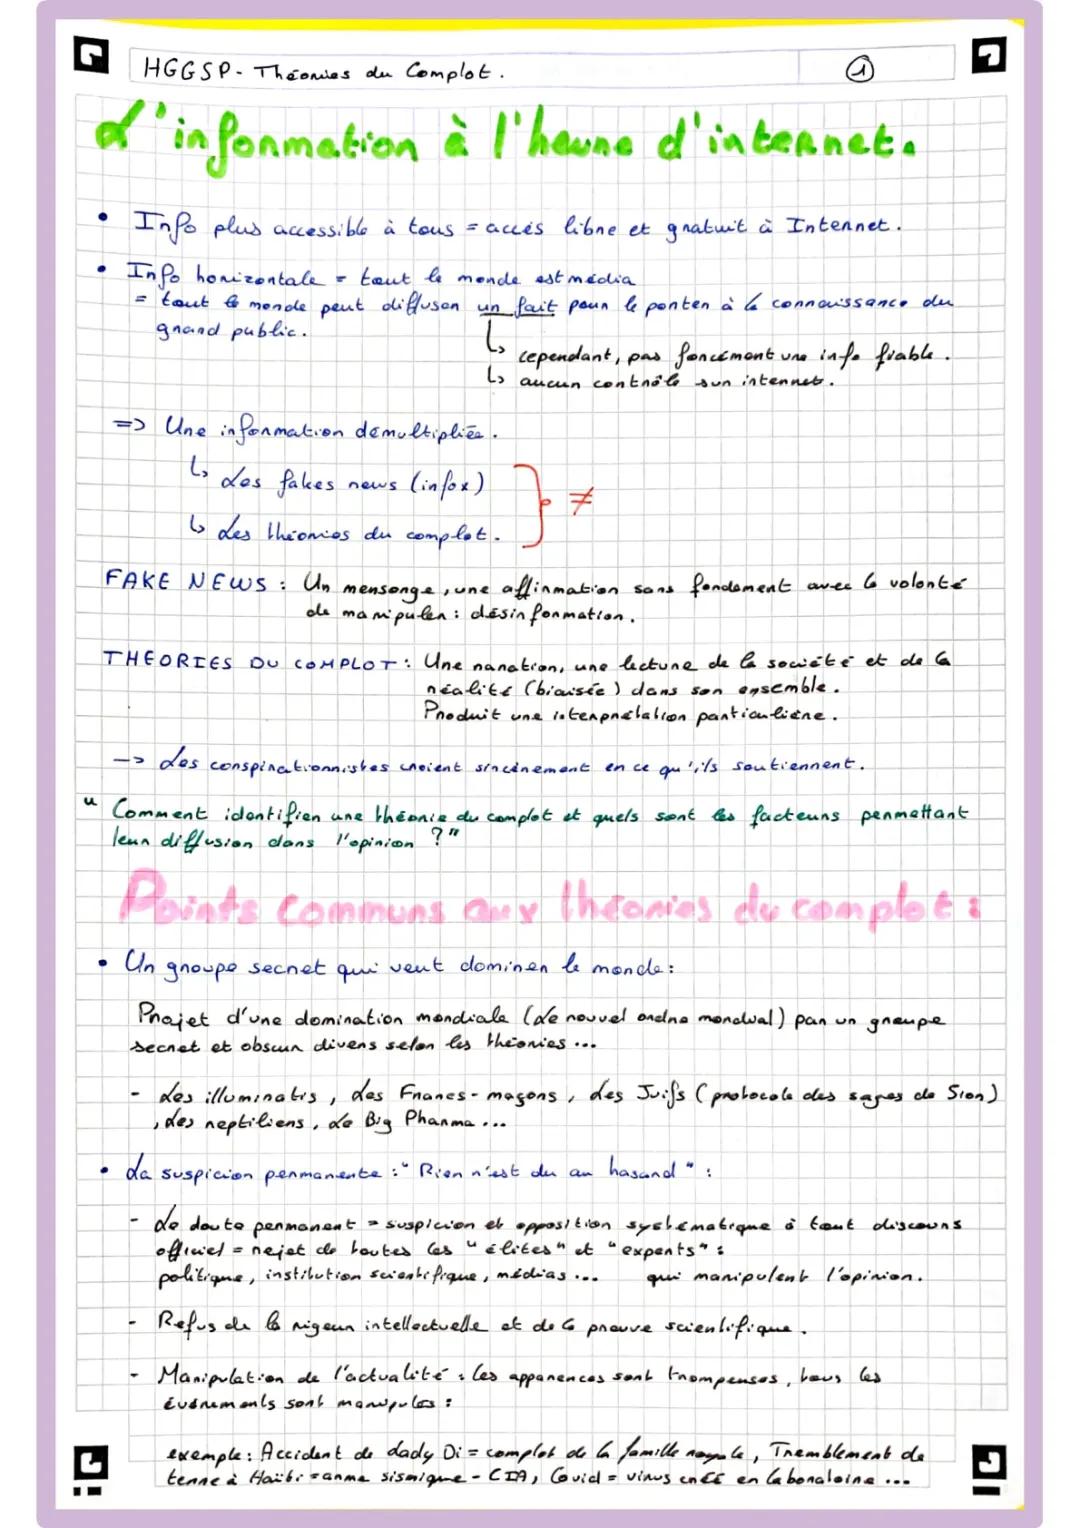 HGGSP - Théories du Complot.
1
L'information à l'heure d'internet.
• Info plus accessible à tous = accès libre et gratuit à Internet.
• Info horizontale = tout le monde est média
= tout le monde peut diffuser un fait pour le porter à la connaissance du
grand public.
↳ cependant, pas forcément une info fiable.
↳ aucun contrôle sur internet.
=> Une information démultipliée.
↳ Les fakes news (infox)
} ≠
↳ Les théories du complot.
FAKE NEWS : Un mensonge, une affirmation sans fondement avec la volonté
de manipuler : désinformation.
THEORIES DU COMPLOT : Une naration, une lecture de la société et de la
réalité (biaisée) dans son ensemble.
Produit une interprétation particulière.
--> Les conspirationnistes croient sincèrement en ce qu'ils soutiennent.
" Comment identifier une théorie du complot et quels sont les facteurs permettant
leur diffusion dans l'opinion ?"
Points Communs aux théories du complot :
• Un groupe secret qui veut dominer le monde :
Projet d'une domination mondiale (Le nouvel ordre mondual) par un groupe
secret et obscur divers selon les théories ...
- Les illuminatis, Les Francs-maçons, Les Juifs (protocole des sages de Sion)
, Les reptiliens, Le Big Pharma ...
• La suspicion permanente : " Rien n'est du au hasard " :
- Le doute permanent = suspicion et opposition systématique à tout discours
officiel = rejet de toutes les "élites" et "experts" :
politique, institution scientifique, médias ... qui manipulent l'opinion.
- Refus de la rigeur intellectuelle et de la preuve scientifique.
- Manipulation de l'actualité : les apparences sont trompeuses, tous les
événements sont manipulés :
exemple : Accident de lady Di = complot de la famille royale, Tremblement de
terre à Haïti = arme sismique - CIA, Covid = virus créé en laboratoire ...